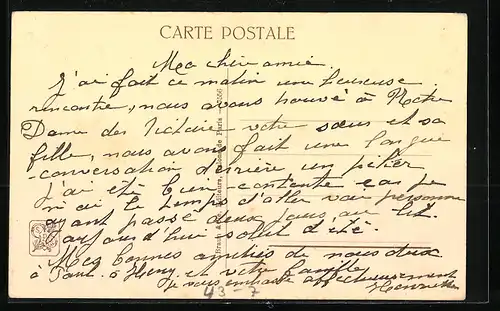 CARTE POSTALE
Ma chère amie.
J'ai fait ce matin une heureuse
rencontre, nous avons trouvé à Notre
Dame des Victoire votre sœur et sa
fille, nous avons fait une longue
conversation derrière un pilier
j'ai été bien contente car je
n'ai eu le temps d'aller voir personne
ayant passé deux jours au lit
aujourd'hui soleil d'été.
Mes bonnes amitiés de nous deux
à Paul. à et votre famille
je vous embrasse affectueusement
43-7
Braun & Cie, Paris